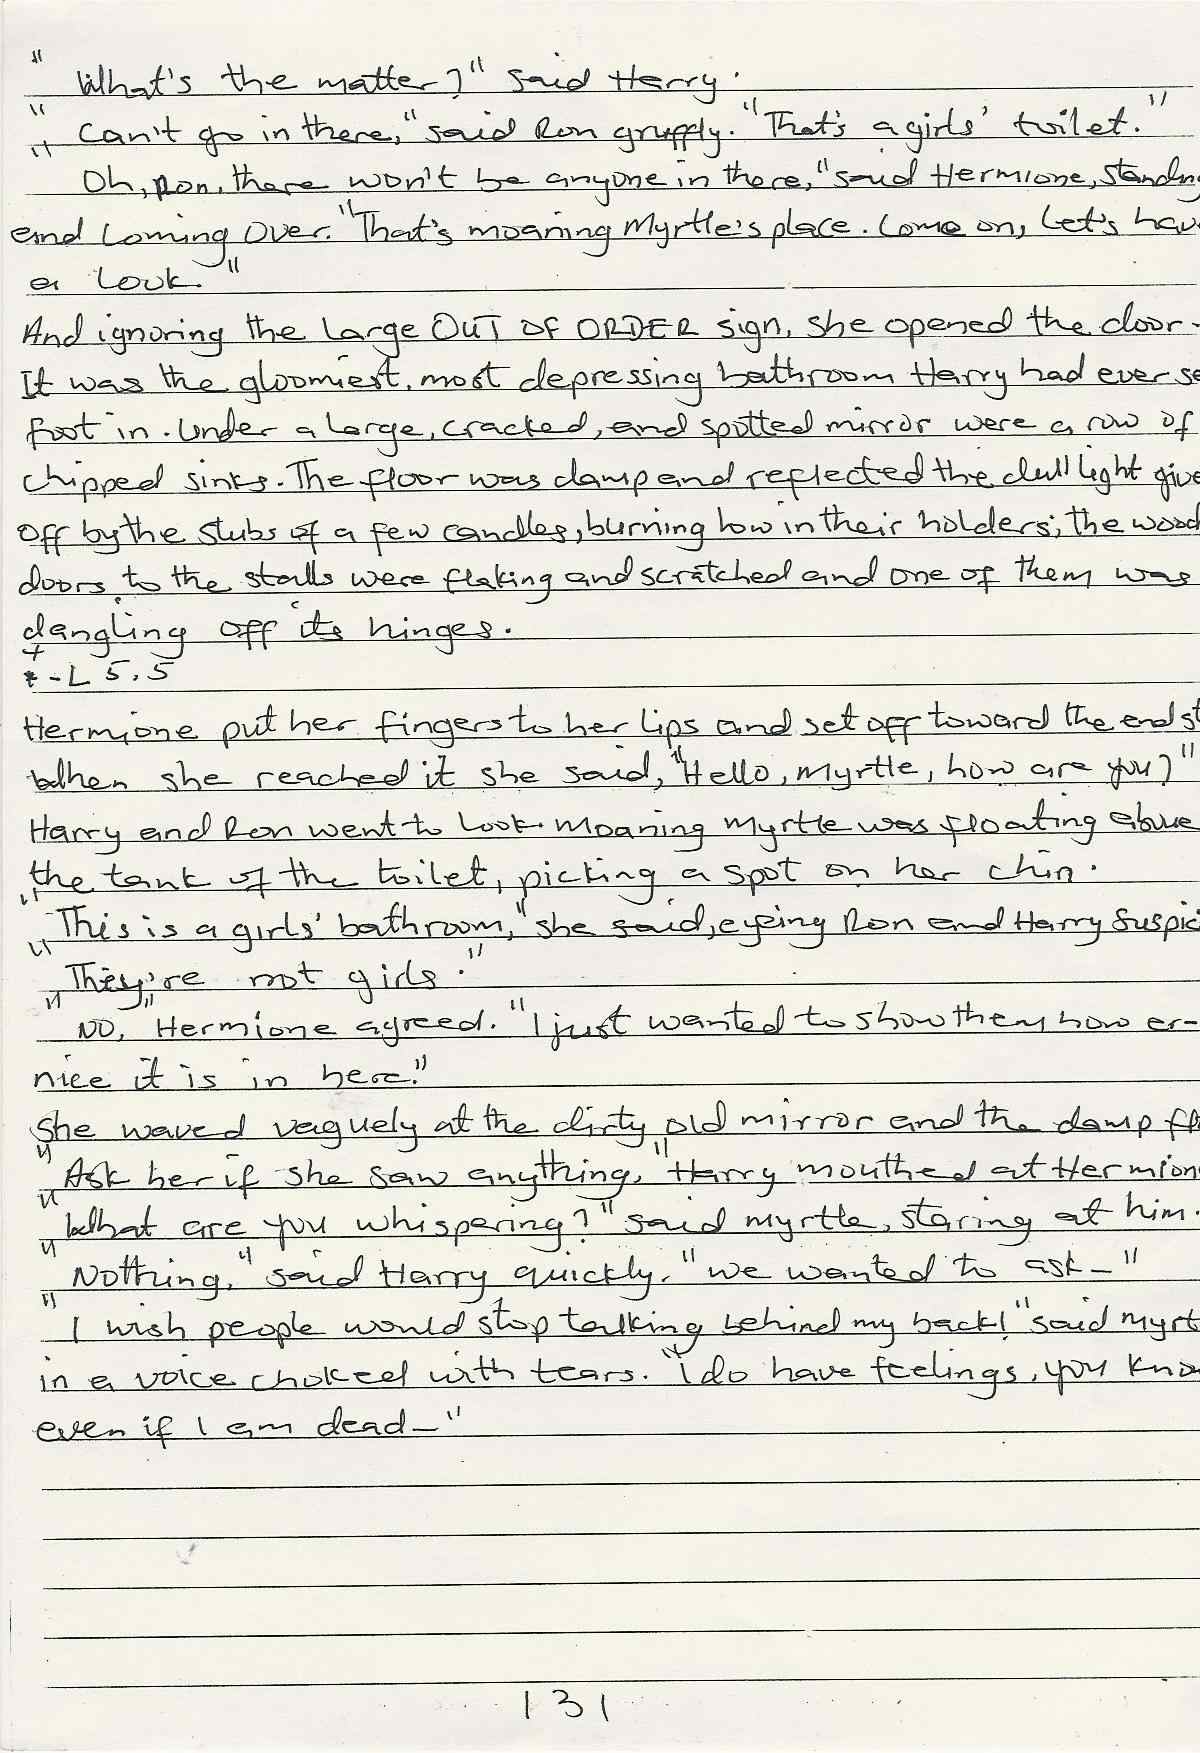 "What's the matter?" said Harry.
"Can't go in there," said Ron gruffly. "That's a girls' toilet."
"Oh, Ron, there won't be anyone in there," said Hermione, standing
and coming over. "That's moaning Myrtle's place. Come on, Let's hav
a look."
And ignoring the large OUT OF ORDER sign, she opened the door.
It was the gloomiest, most depressing bathroom Harry had ever se
foot in. Under a large, cracked, and spotted mirror were a row of
chipped sinks. The floor was damp and reflected the dull light give
off by the stubs of a few candles, burning low in their holders; the wood
doors to the stalls were flaking and scratched and one of them was
dangling off its hinges.
-L 5.5
Hermione put her fingers to her lips and set off toward the end st
When she reached it she said, "Hello, Myrtle, how are you?"
Harry and Ron went to look. Moaning Myrtle was floating above
the tank of the toilet, picking a spot on her chin.
"This is a girls' bathroom," she said, eyeing Ron and Harry Suspic
"They're not girls."
"No," Hermione agreed. "I just wanted to show them how er-
nice it is in here."
She waved vaguely at the dirty old mirror and the damp fl
"Ask her if she saw anything," Harry mouthed at Hermion
"What are you whispering?" said Myrtle, staring at him.
"Nothing," said Harry quickly. "we wanted to ask-"
"I wish people would stop talking behind my back!" said Myrt
in a voice choked with tears. "I do have feelings, you kno
even if I am dead-"
131